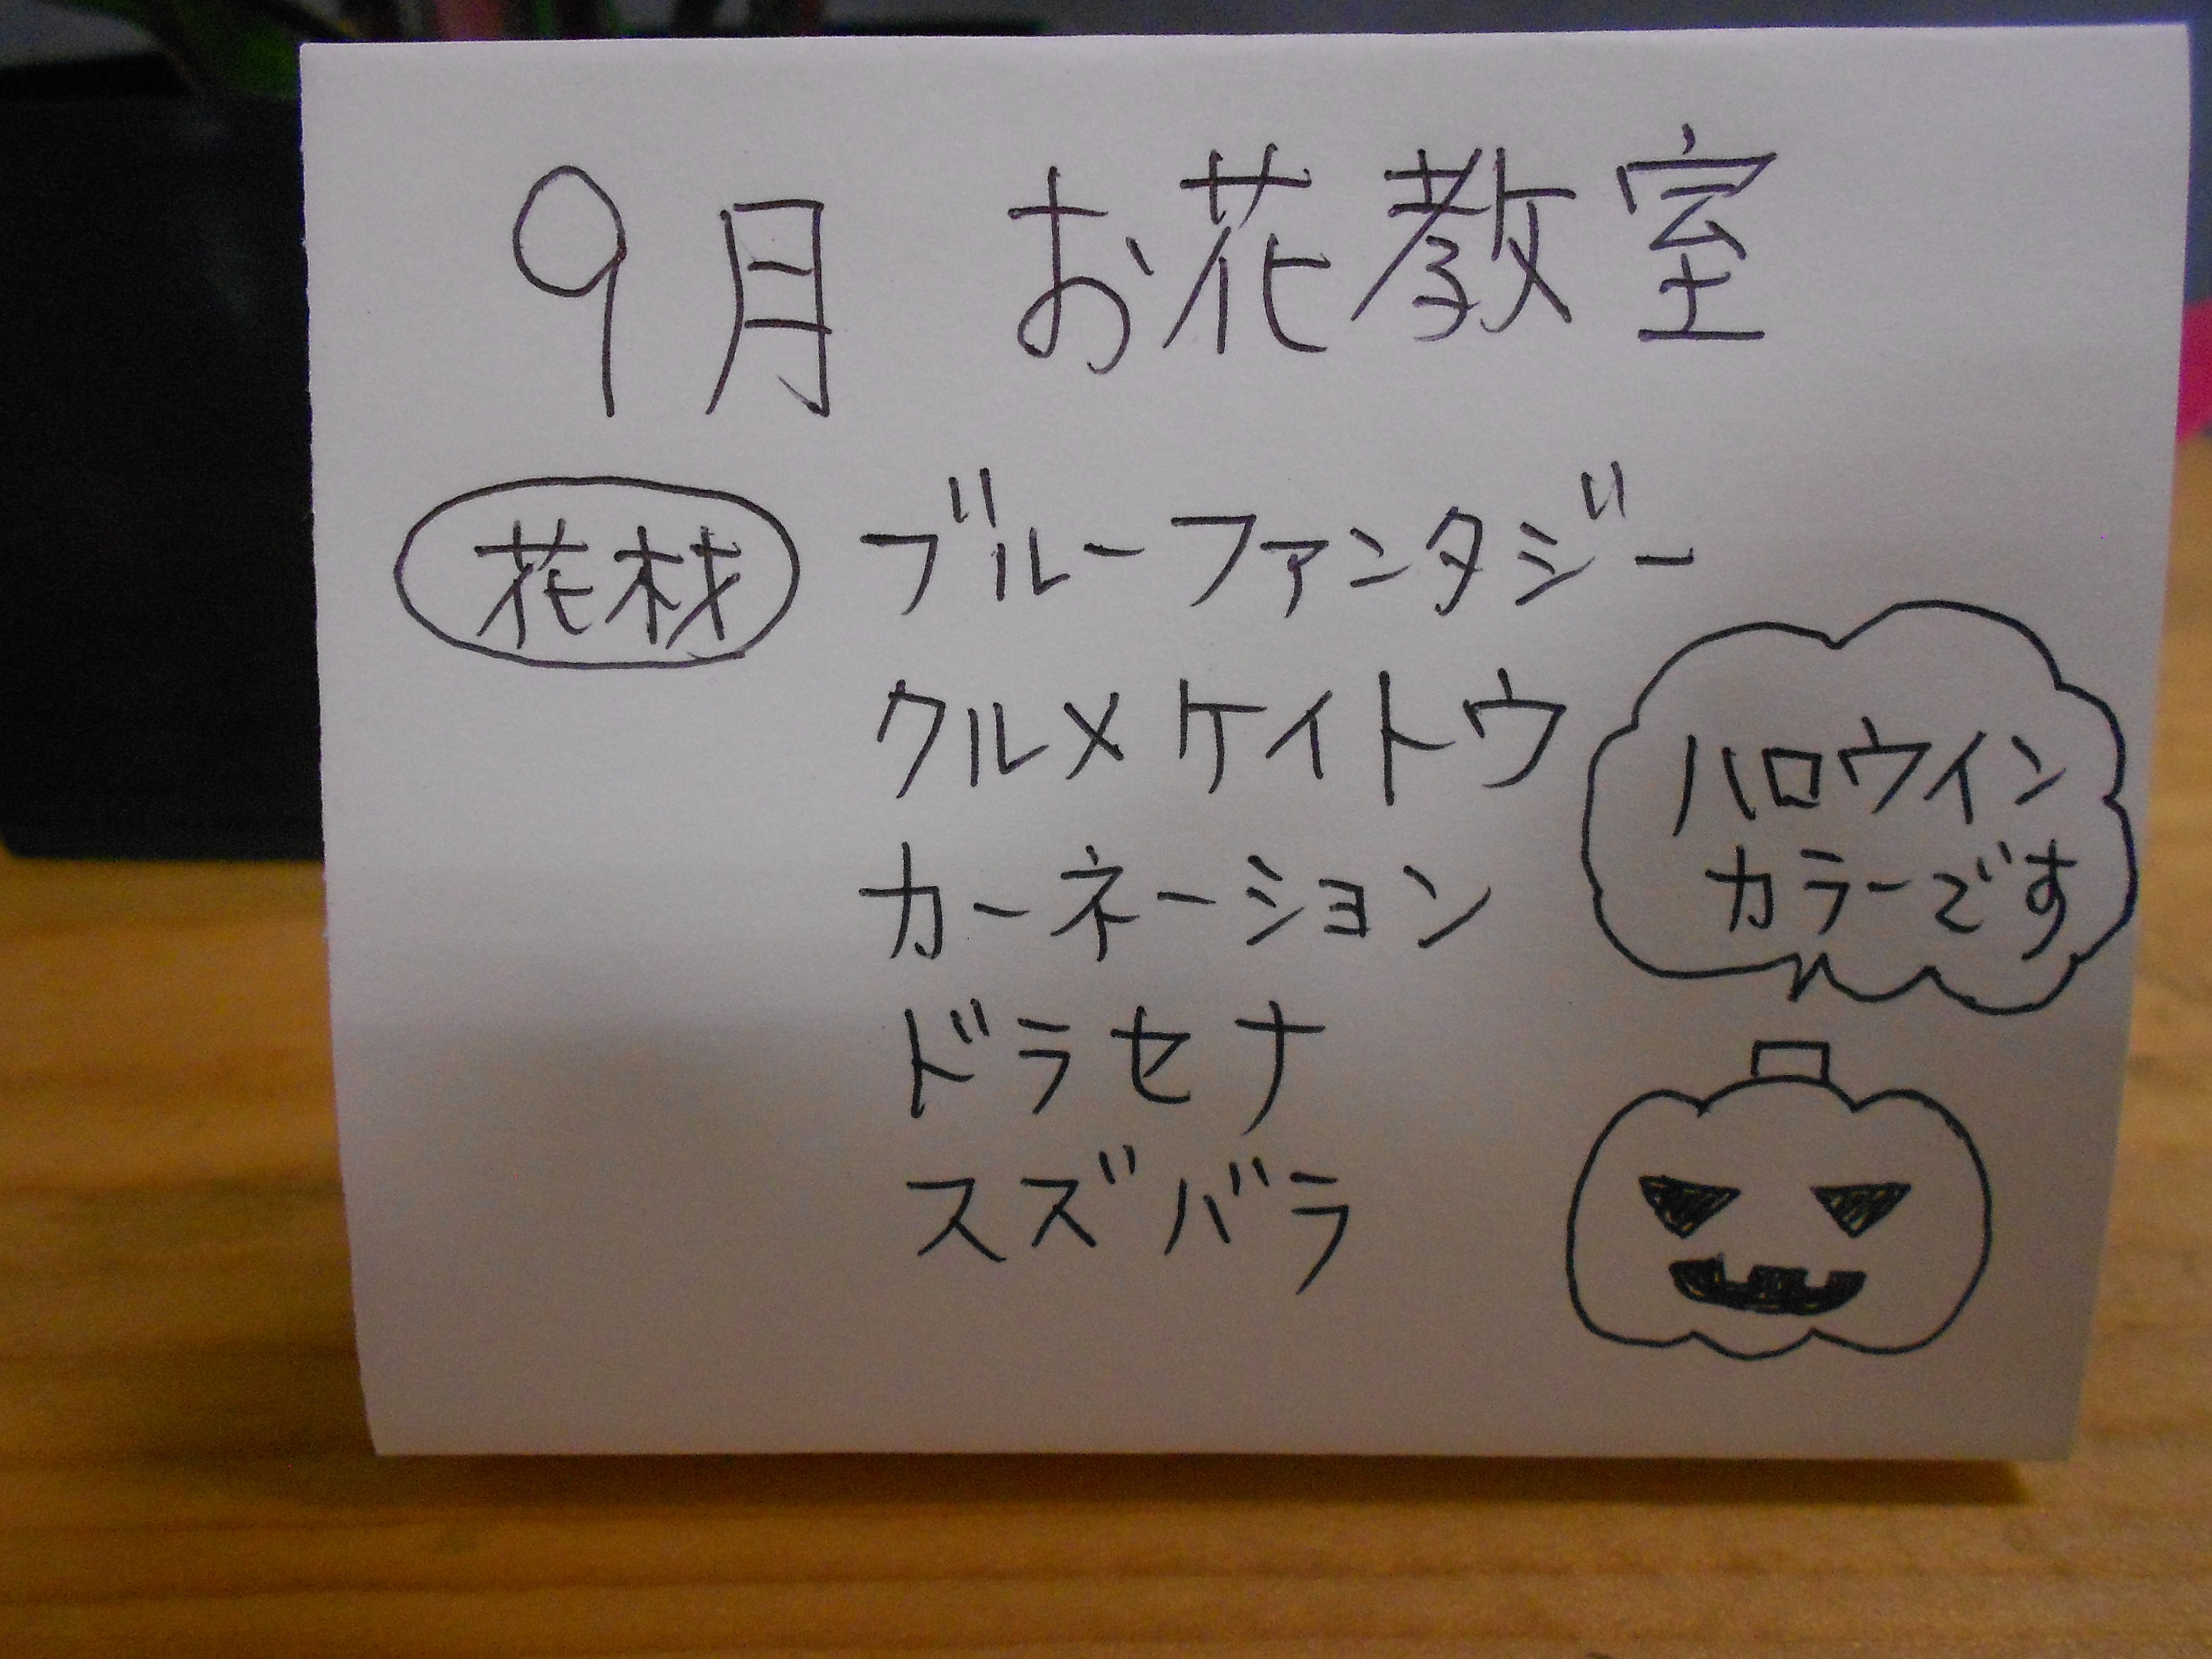 9月 お花教室
花材 ブルーファンタジー
クルメケイトウ
カーネーション
ドラセナ
スズバラ
ハロウイン
カラーです